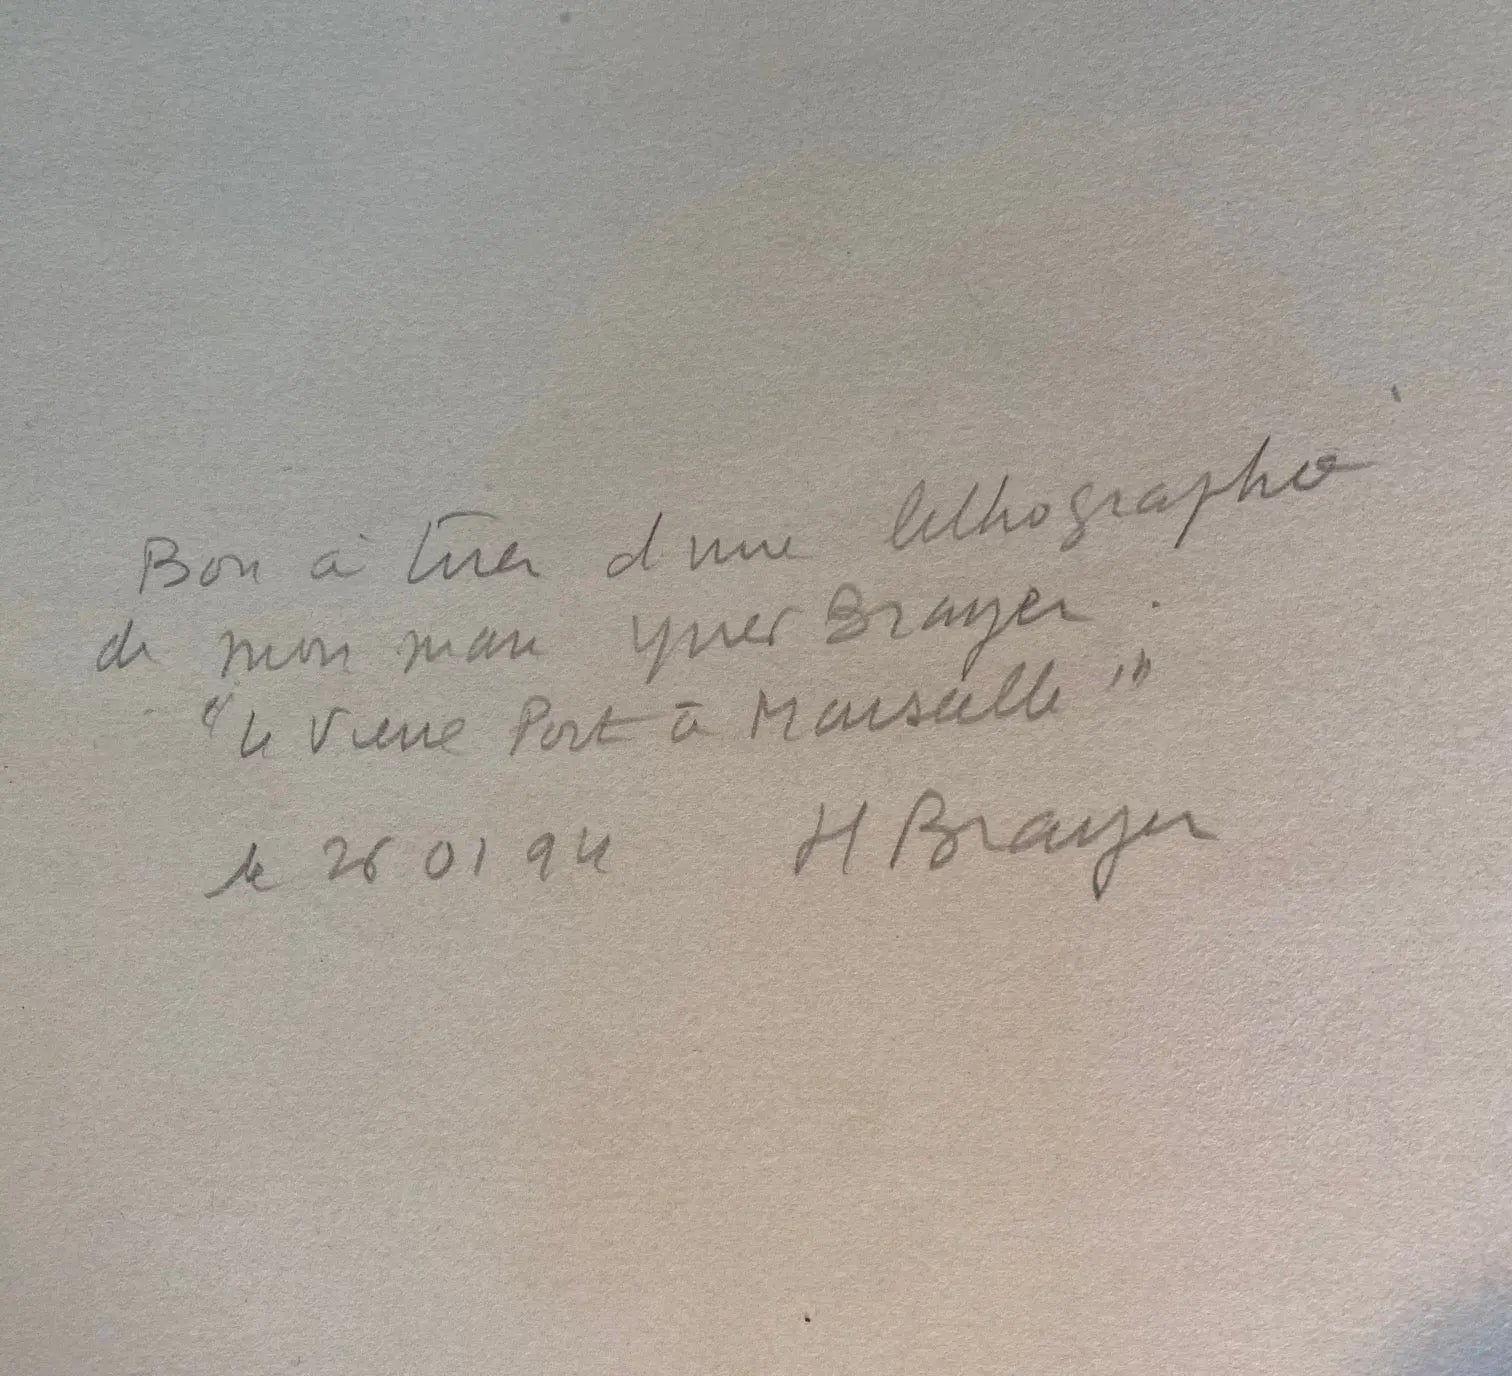 Bon à tirer d'une lithographie
de mon mari Yves Brayer.
"Le Vieux Port à Marseille"
le 26 01 94 H Brayer